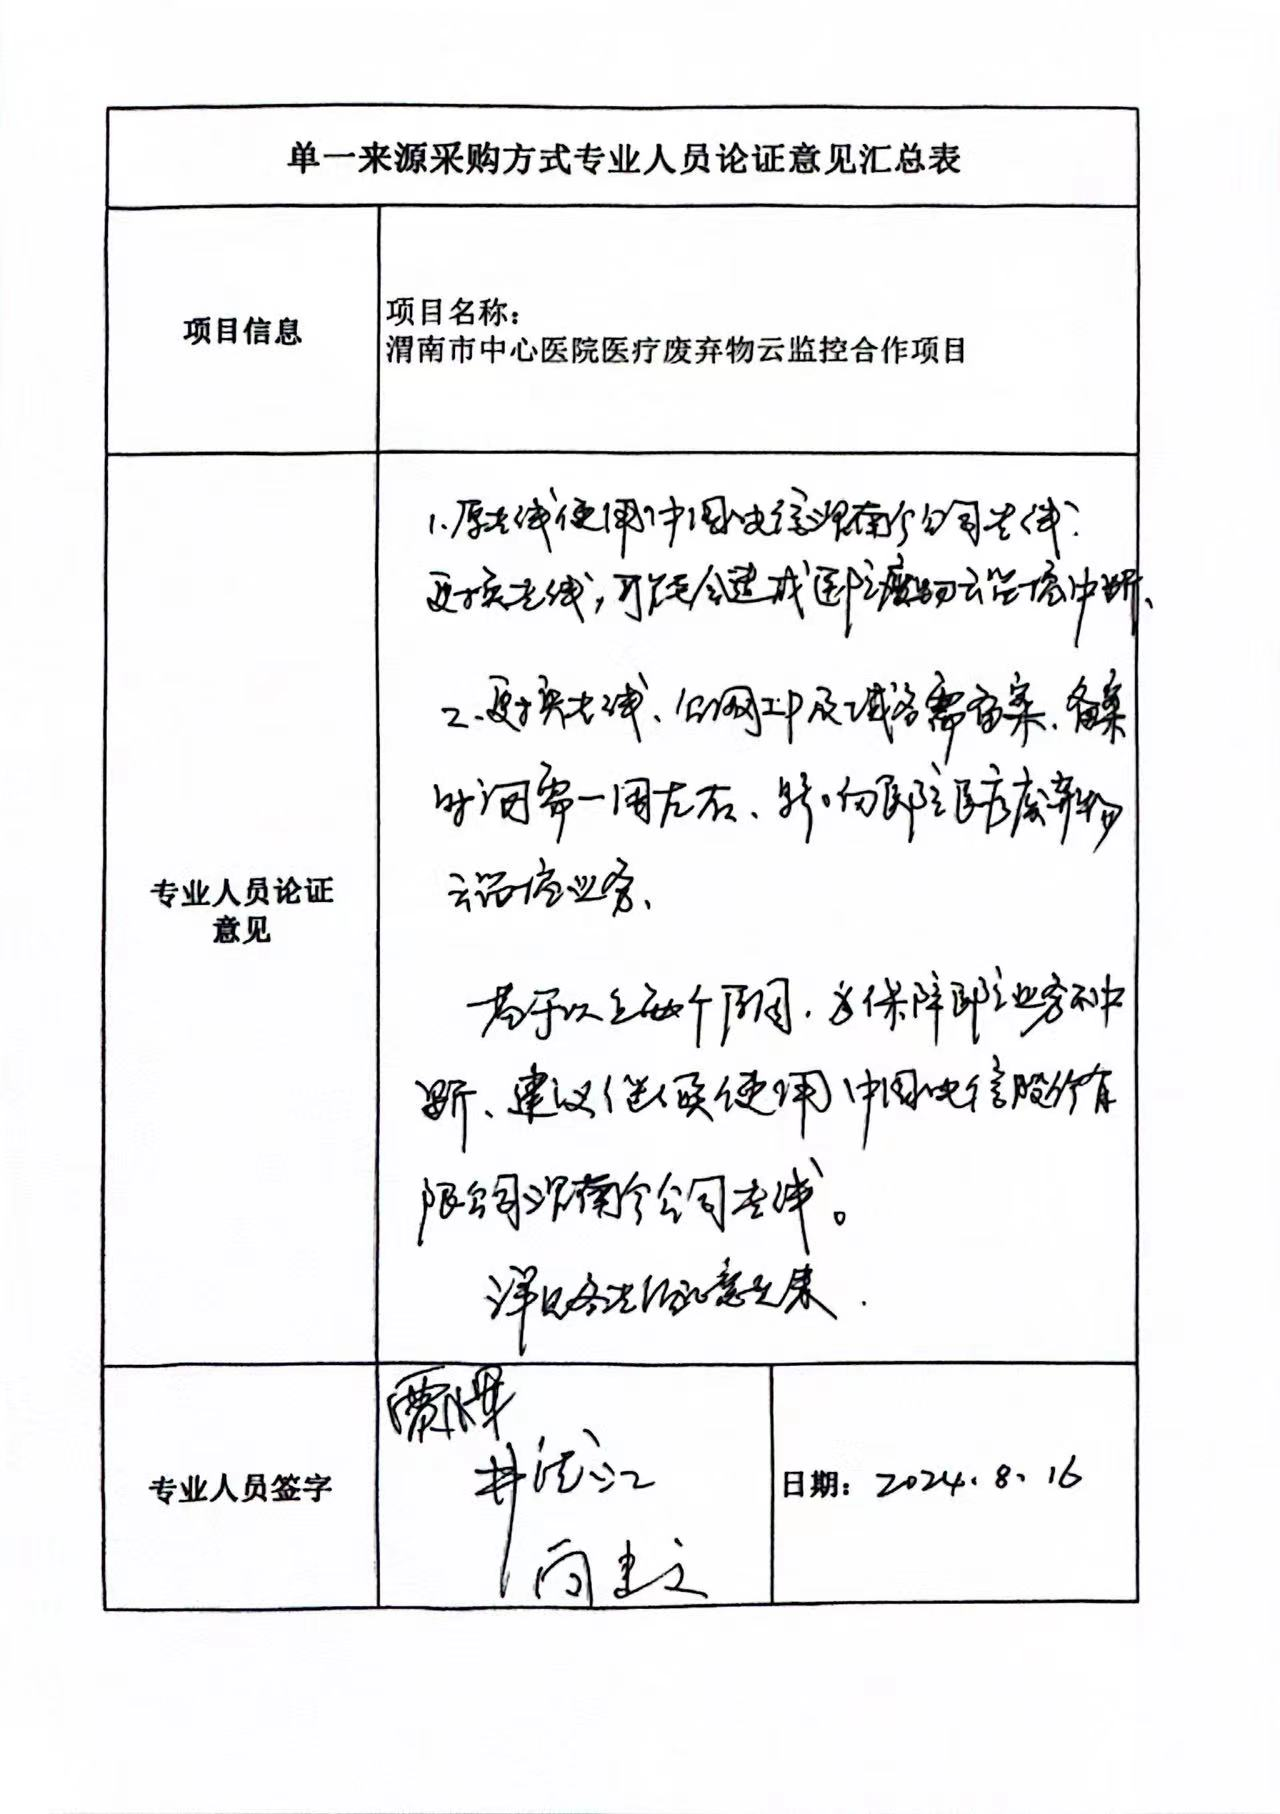 单一来源采购方式专业人员论证意见汇总表
项目信息
项目名称：
渭南市中心医院医疗废弃物云监控合作项目
专业人员论证
意见
1、原专线使用中国电信渭南分公司专线，
更换专线，可能会造成医院废物云监控中断、
2、更换专线、公网IP及域名需备案、备案
时间需一周左右、影响医院医疗废弃物
云监控业务、
基于以上两个原因，为保障医院业务不中
断、建议继续使用中国电信股份有
限公司渭南分公司专线。
详见各专家论证意见表.
专业人员签字
井浅江
向建文
日期：2024.8.16